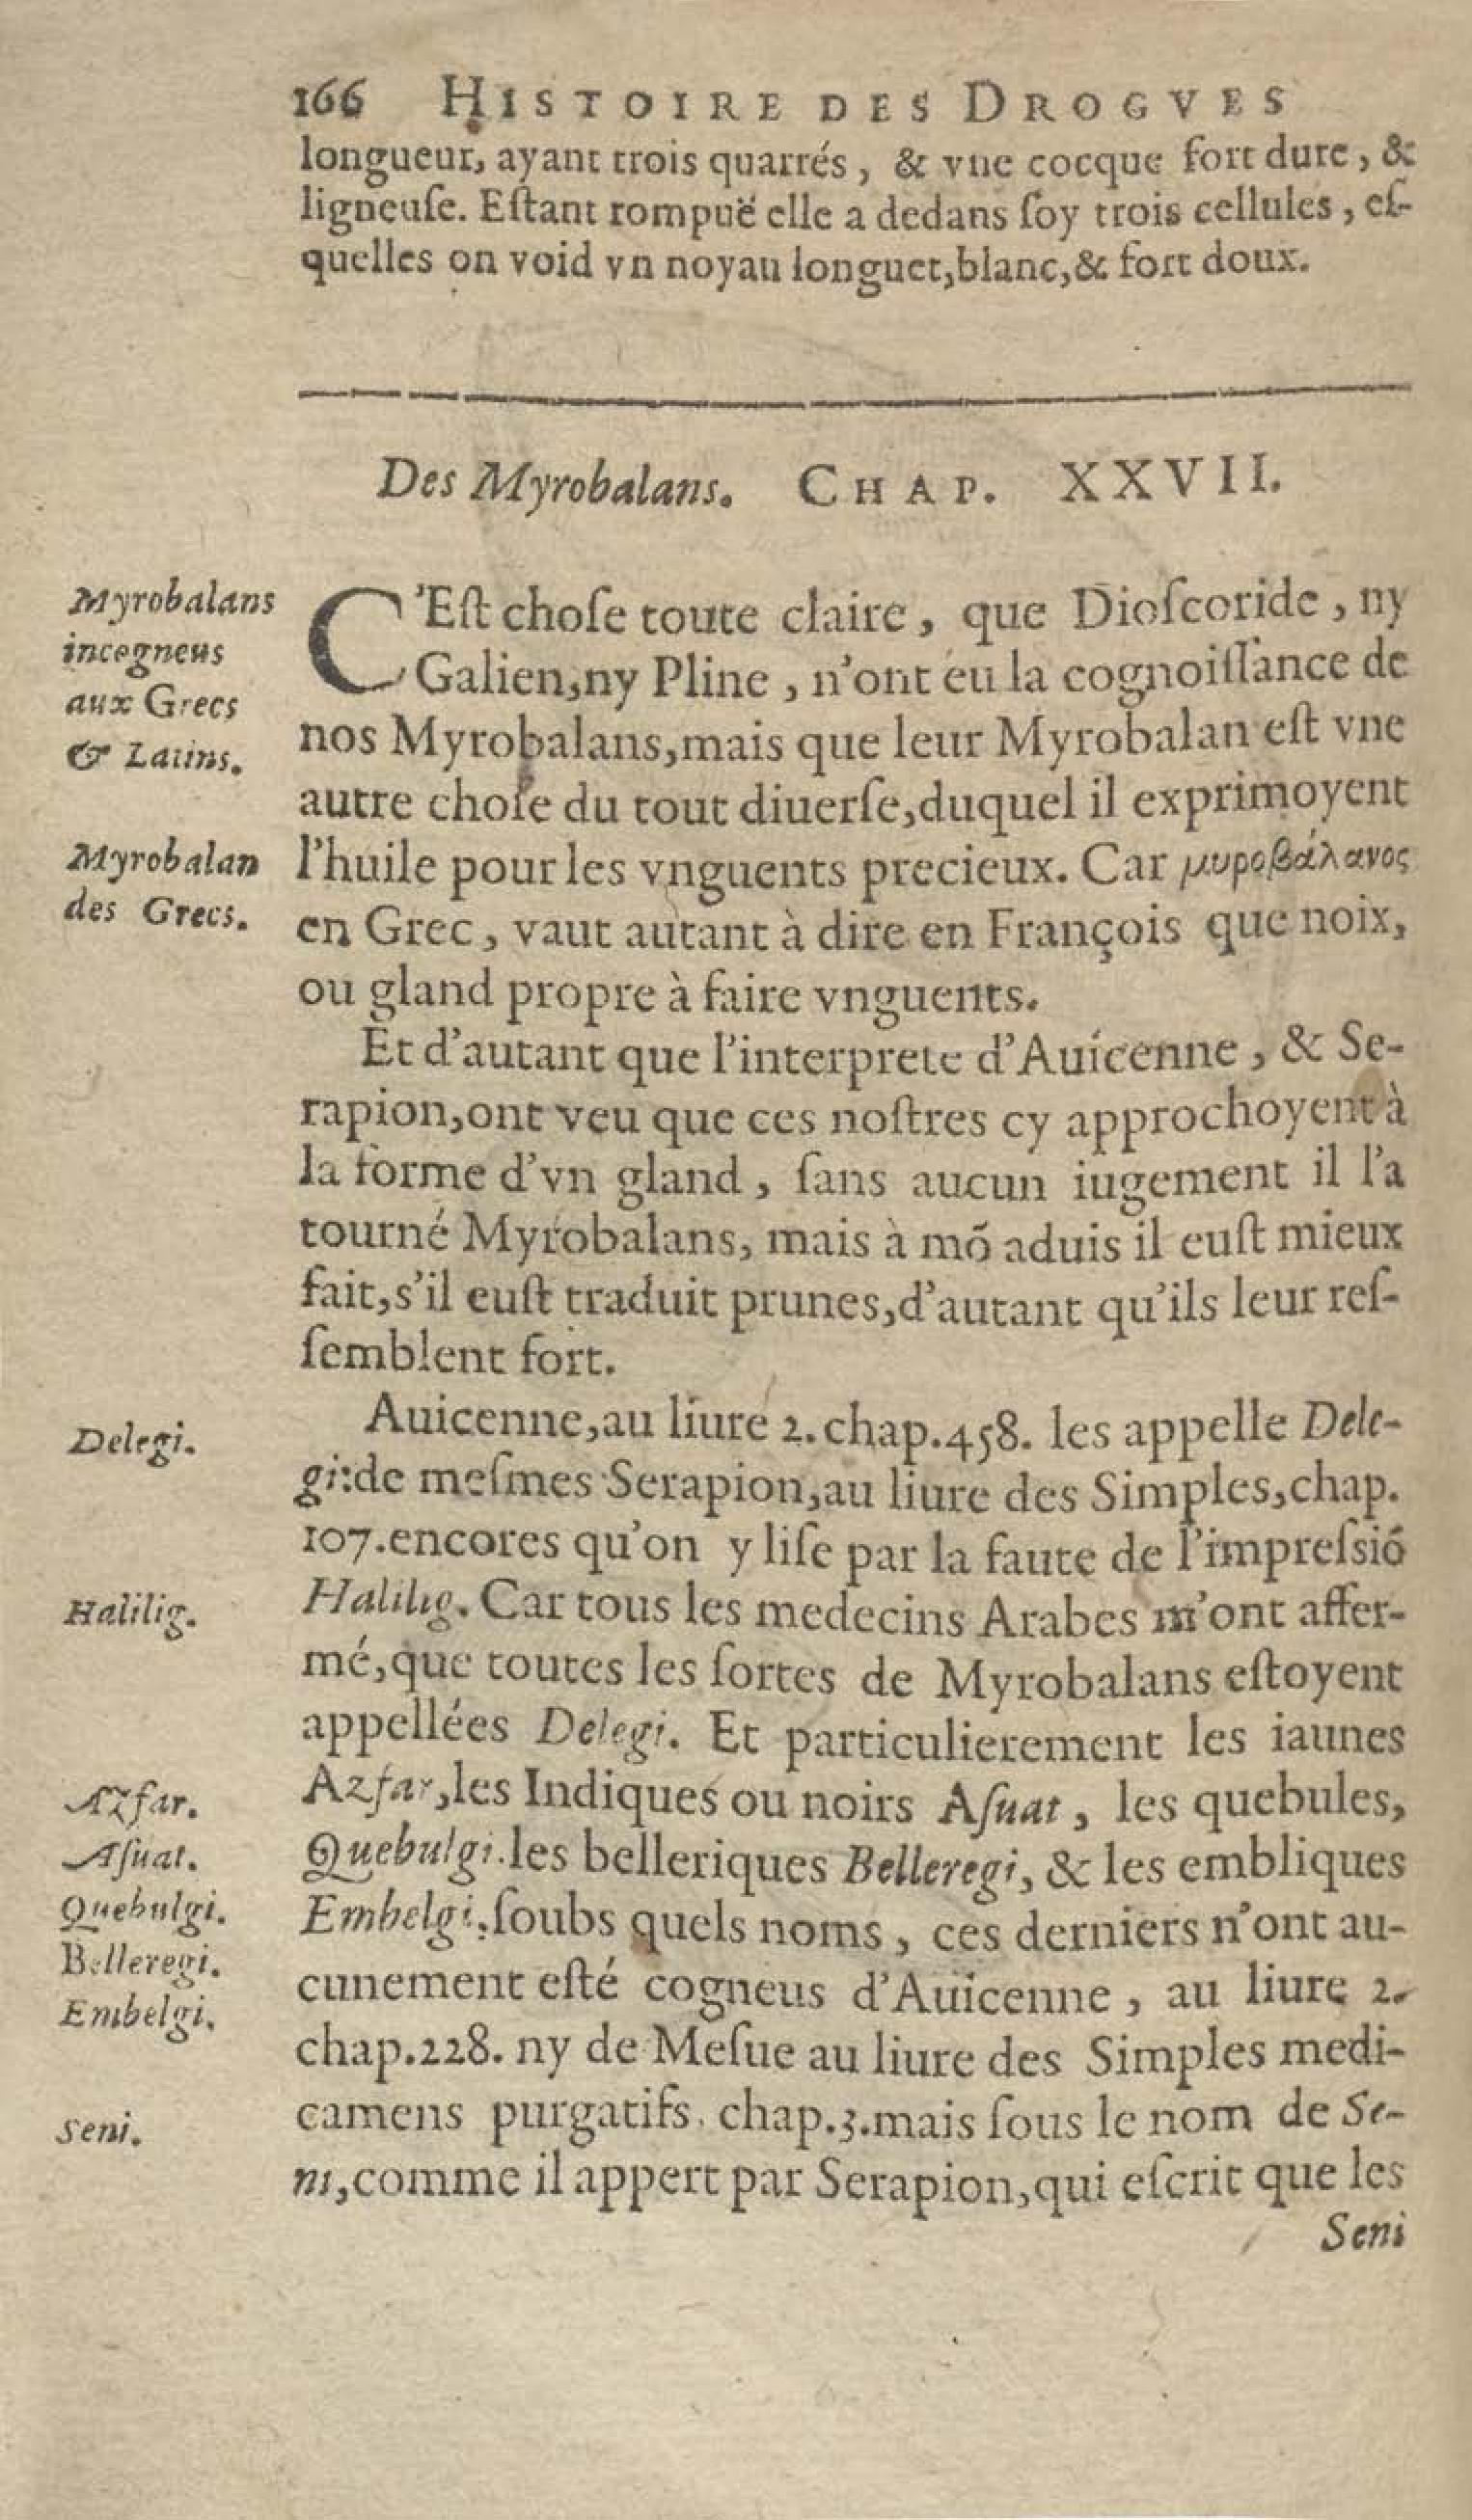 166 HISTOIRE DES DROGVES
longueur, ayant trois quarrés, & vne cocque fort dure, &
ligneuſe. Eſtant rompuë elle a dedans ſoy trois cellules, eſ-
quelles on void vn noyau longuet, blanc, & fort doux.
Des Myrobalans. CHAP. XXVII.
Myrobalans
incogneus
aux Grecs
& Latins.
C'Eſt choſe toute claire, que Dioſcoride, ny
Galien, ny Pline, n'ont eu la cognoiſſance de
nos Myrobalans, mais que leur Myrobalan eſt vne
autre choſe du tout diuerſe, duquel il exprimoyent
Myrobalan
des Grecs.
l'huile pour les vnguents precieux. Car μυροβάλανος
en Grec, vaut autant à dire en François que noix,
ou gland propre à faire vnguents.
Et d'autant que l'interprete d'Auicenne, & Se-
rapion, ont veu que ces noſtres cy approchoyent à
la forme d'vn gland, ſans aucun iugement il l'a
tourné Myrobalans, mais à mõ aduis il euſt mieux
fait, s'il euſt traduit prunes, d'autant qu'ils leur reſ-
ſemblent fort.
Delegi.
Auicenne, au liure 2. chap. 458. les appelle Dele-
gi: de meſmes Serapion, au liure des Simples, chap.
107. encores qu'on y liſe par la faute de l'impreſsiõ
Halilig.
Halilig. Car tous les medecins Arabes m'ont affer-
mé, que toutes les ſortes de Myrobalans eſtoyent
appellées Delegi. Et particulierement les iaunes
Azfar.
Aſuat.
Quebulgi.
Belleregi.
Embelgi.
Azfar, les Indiques ou noirs Aſuat, les quebules,
Quebulgi. les belleriques Belleregi, & les embliques
Embelgi. ſoubs quels noms, ces derniers n'ont au-
cunement eſté cogneus d'Auicenne, au liure 2.
chap. 228. ny de Meſue au liure des Simples medi-
Seni.
camens purgatifs. chap. 3. mais ſous le nom de Se-
ni, comme il appert par Serapion, qui eſcrit que les
Seni